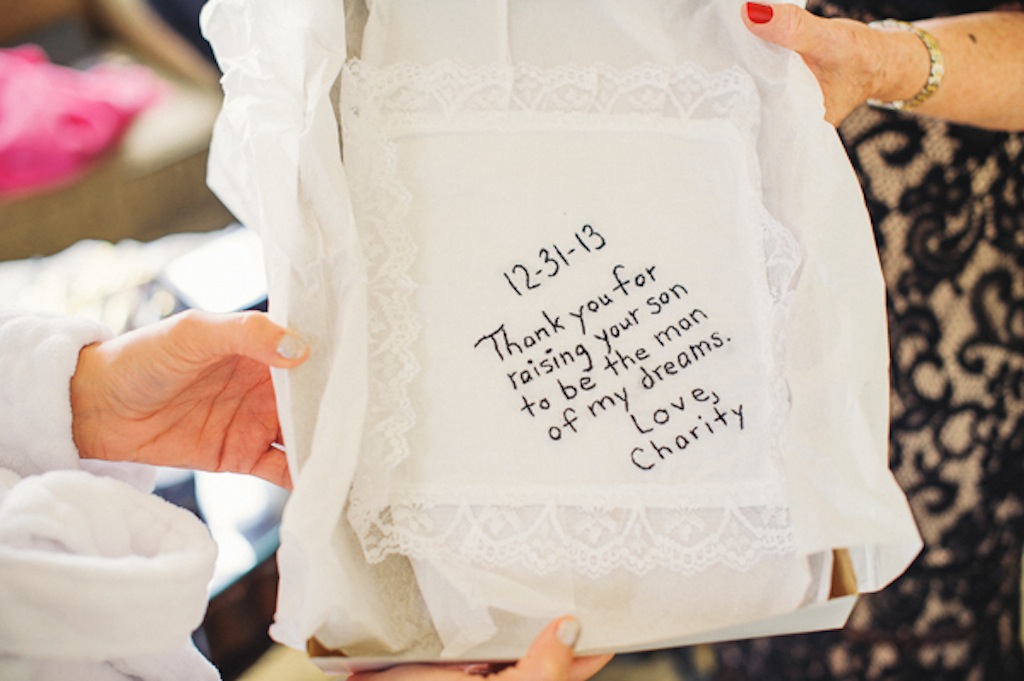 12-31-13
Thank you for
raising your son
to be the man
of my dreams.
Love,
Charity